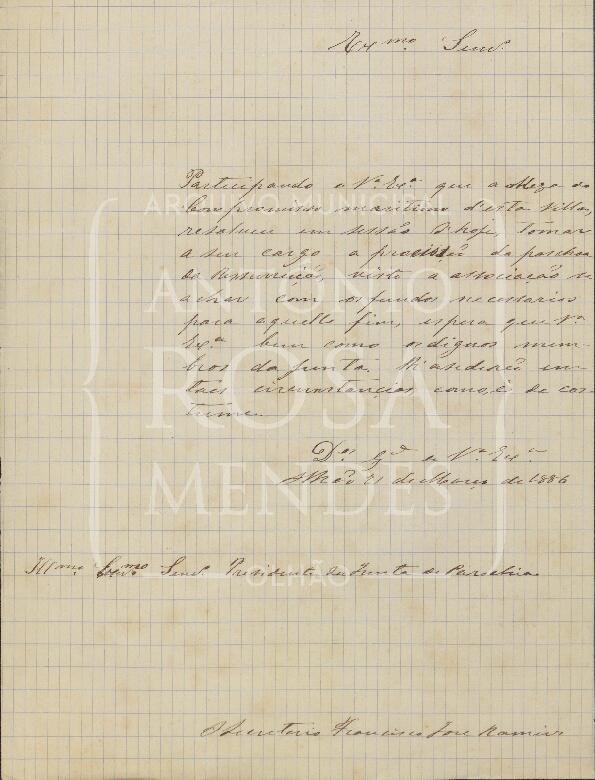 Exmo. Senr.
Participando a Va. Exa. que a Meza do
Compromisso maritimo d'esta Villa,
resolveu em sessão d'hoje, tomar
a seu cargo a procissão da paschoa
da Ressurreição, visto a associação se
achar com os fundos necessarios
para aquelle fim, espera que Va.
Exa. bem como os dignos mem-
bros da Junta. em
taes circunstancias, como, é de cos-
tume.
Ds. gde a Va. Exa.
Olhão 21 de Março de 1886
Illmo. Exmo. Senr. Presidente da Junta de Parochia
O Secretario Francisco José Ramires
ARQUIVO MUNICIPAL
ANTÓNIO
ROSA
MENDES
OLHÃO